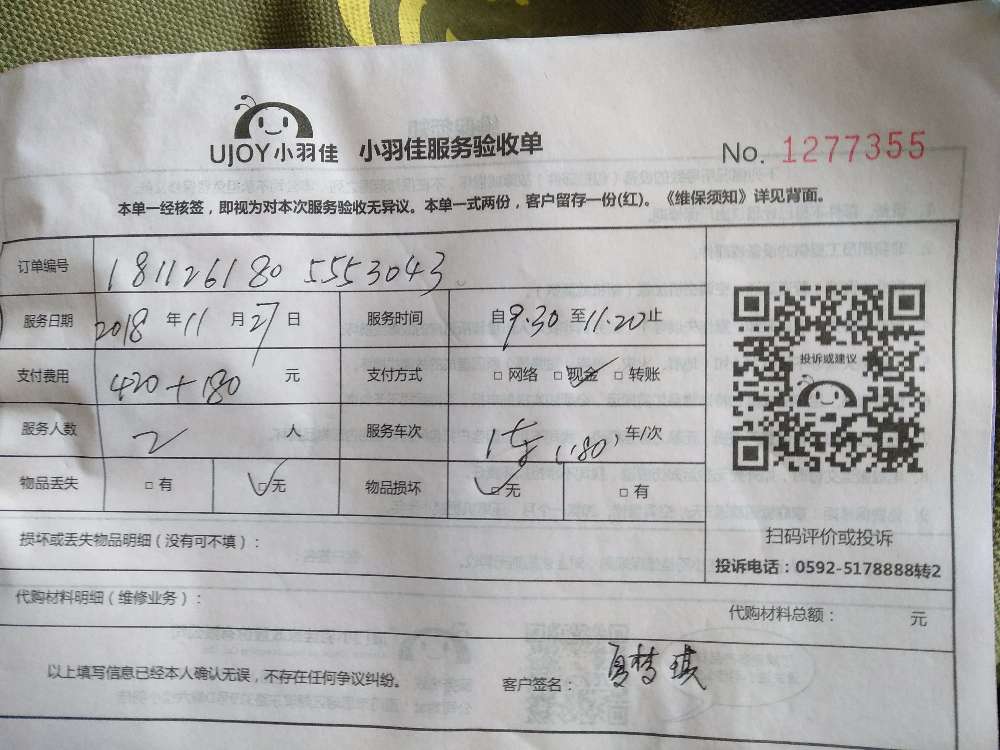 UJOY小羽佳 小羽佳服务验收单 No. 1277355
本单一经核签，即视为对本次服务验收无异议。本单一式两份，客户留存一份(红)。《维保须知》详见背面。
订单编号 181126180 5553043
服务日期 2018 年 11 月 27 日 服务时间 自9.30至11.20止
支付费用 420+180 元 支付方式 □ 网络 □ 现金 □ 转账
服务人数 2 人 服务车次 1车(180) 车/次
物品丢失 □ 有 □ 无 物品损坏 □ 无 □ 有
投诉或建议
扫码评价或投诉
投诉电话：0592-5178888转2
损坏或丢失物品明细（没有可不填）：
代购材料明细（维修业务）： 代购材料总额： 元
以上填写信息已经本人确认无误，不存在任何争议纠纷。 客户签名： 夏梦琪